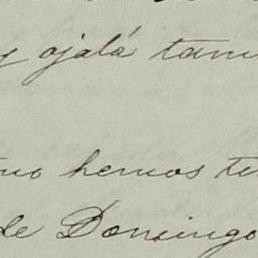 y ojalá tam
no hemos te
de Domingo